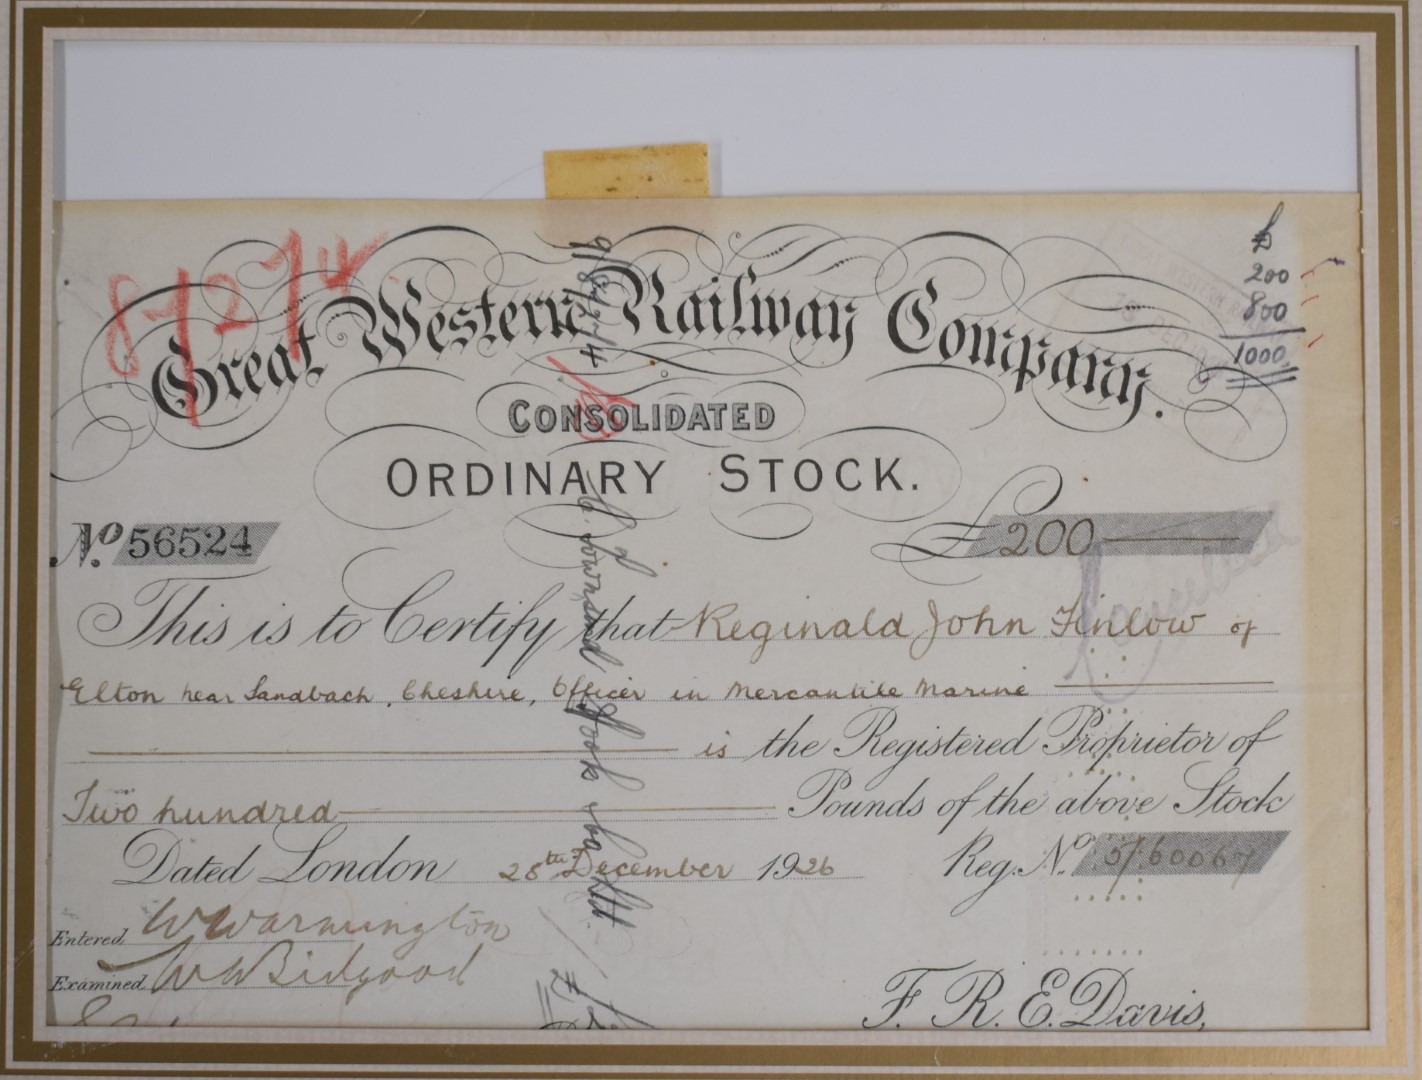 87274
£
200
800
1000
Great Western Railway Company.
CONSOLIDATED
ORDINARY STOCK.
No. 56524
£200
Cancelled
This is to Certify that Reginald John Finlow of
Elton near Sandbach, Cheshire, Officer in Mercantile Marine
is the Registered Proprietor of
Two hundred Pounds of the above Stock
Dated London 28th December 1926 Reg. No. 5/60067
Entered W Warmington
Examined W Bidgood
F. R. E. Davis,